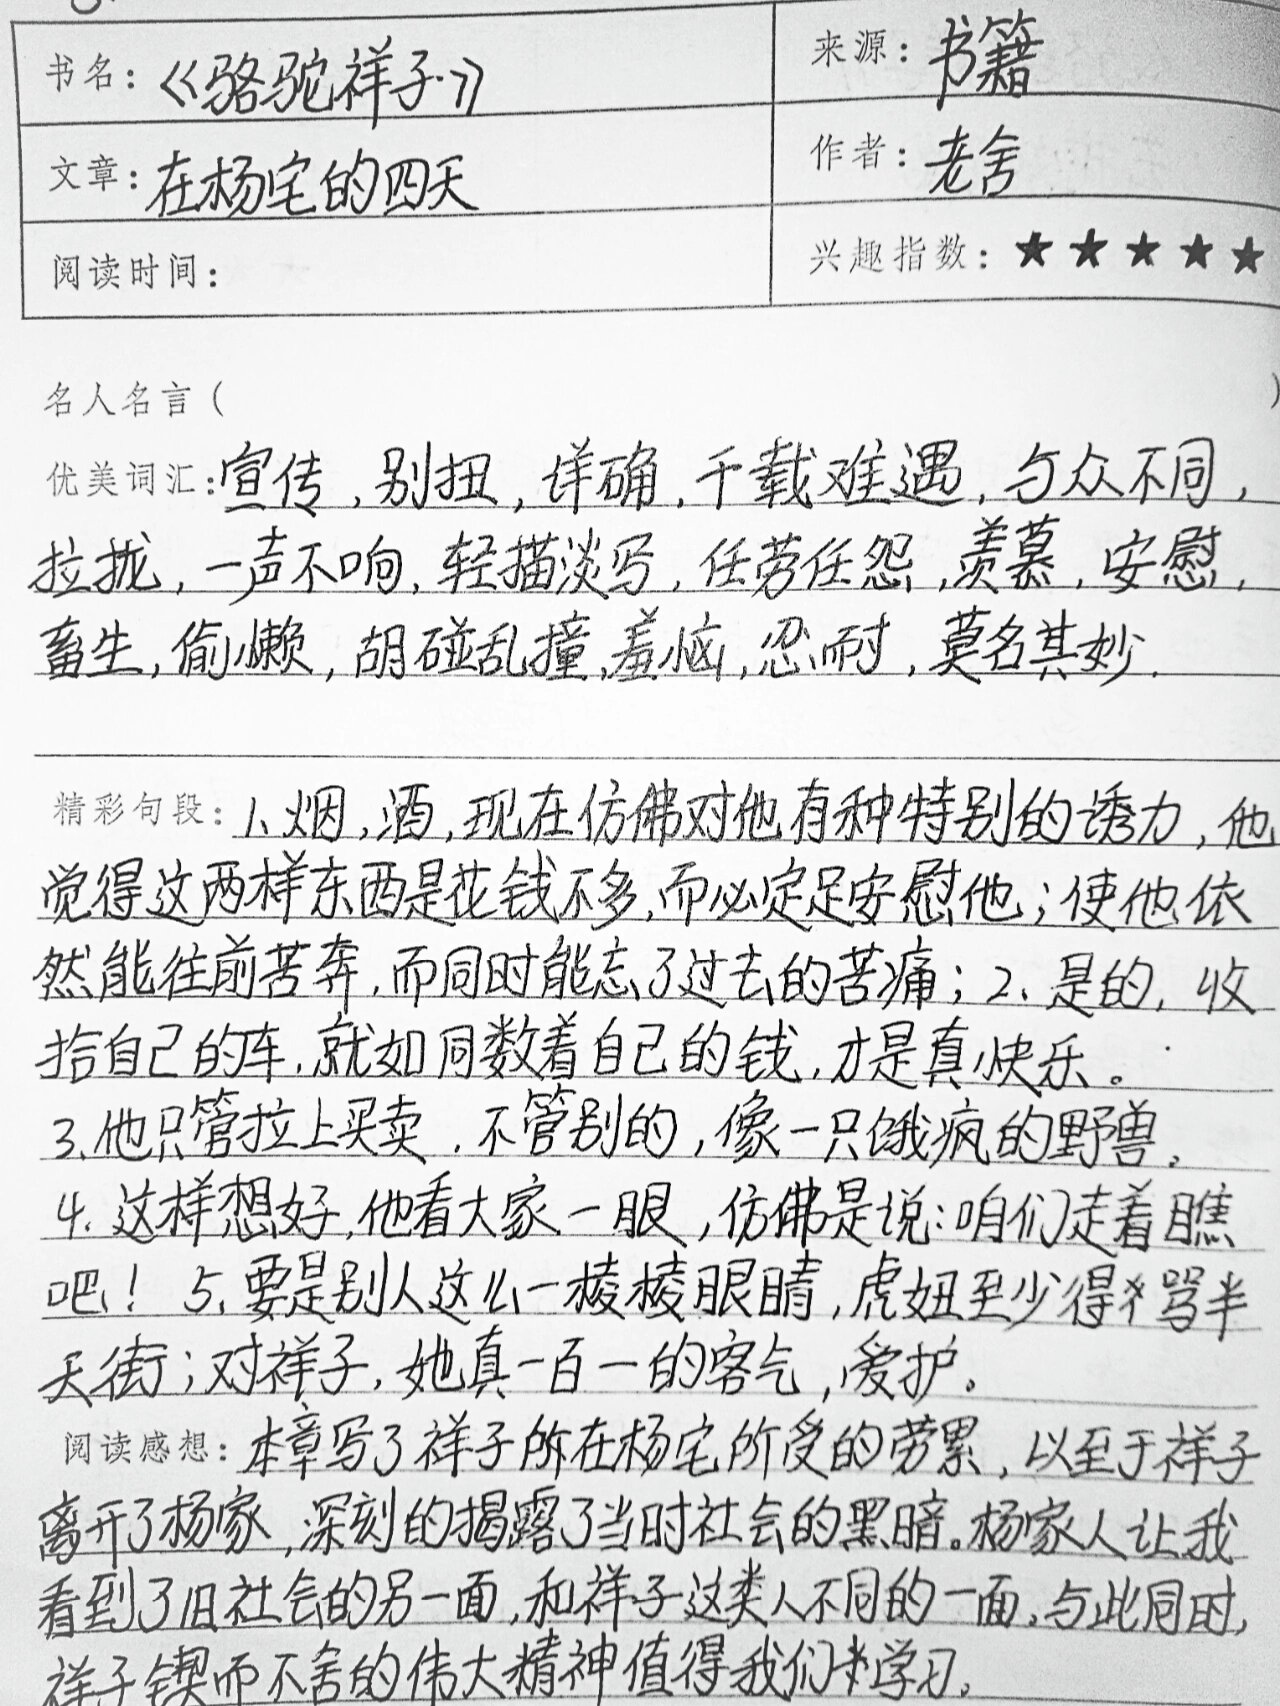 书名：《骆驼祥子》 来源：书籍
文章：在杨宅的四天 作者：老舍
阅读时间： 兴趣指数：★★★★★
名人名言（ ）
优美词汇：宣传，别扭，详确，千载难遇，与众不同，
拉拢，一声不响，轻描淡写，任劳任怨，羡慕，安慰，
畜生，偷懒，胡碰乱撞，羞恼，忍耐，莫名其妙．
精彩句段：1、烟，酒，现在仿佛对他有种特别的诱力，他
觉得这两样东西是花钱不多，而必定足安慰他；使他依
然能往前苦奔，而同时能忘了过去的苦痛；2、是的，收
拾自己的车，就如同数着自己的钱，才是真快乐。
3、他只管拉上买卖，不管别的，像一只饿疯的野兽。
4、这样想好，他看大家一眼，仿佛是说：咱们走着瞧
吧！ 5、要是别人这么一棱棱眼睛，虎妞至少得骂半
天街；对祥子，她真一百一的客气，爱护。
阅读感想：本章写了祥子所在杨宅所受的劳累，以至于祥子
离开了杨家，深刻的揭露了当时社会的黑暗。杨家人让我
看到了旧社会的另一面，和祥子这类人不同的一面，与此同时，
祥子锲而不舍的伟大精神值得我们学习。